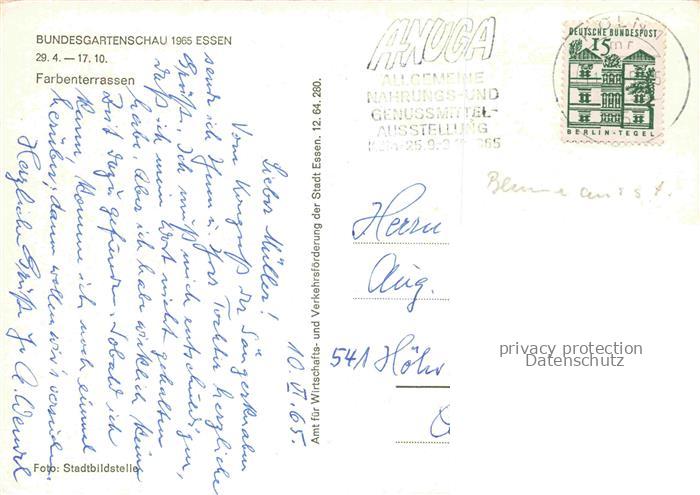 BUNDESGARTENSCHAU 1965 ESSEN
29. 4. — 17. 10.
Farbenterrassen
10. VI. 65.
Lieber Müller!
Vom Kongreß der Sängerknaben
sende ich Ihnen u. Ihrer Tochter herzliche
Grüße. Ich muß mich entschuldigen,
daß ich mein Wort nicht gehalten
habe. Aber ich habe wirklich keine
Zeit dazu gefunden. Sobald ich
kann, komme ich noch einmal
herüber; dann wollen wir's versuchen.
Herzliche Grüße Ihr A. Wenzel
Foto: Stadtbildstelle
Amt für Wirtschafts- und Verkehrsförderung der Stadt Essen. 12. 64. 280.
ANUGA
ALLGEMEINE
NAHRUNGS-UND
GENUSSMITTEL-
AUSSTELLUNG
KÖLN
DEUTSCHE BUNDESPOST
15
BERLIN-TEGEL
Blumenausst.
Herrn
Aug.
541 Höhr
privacy protection
Datenschutz